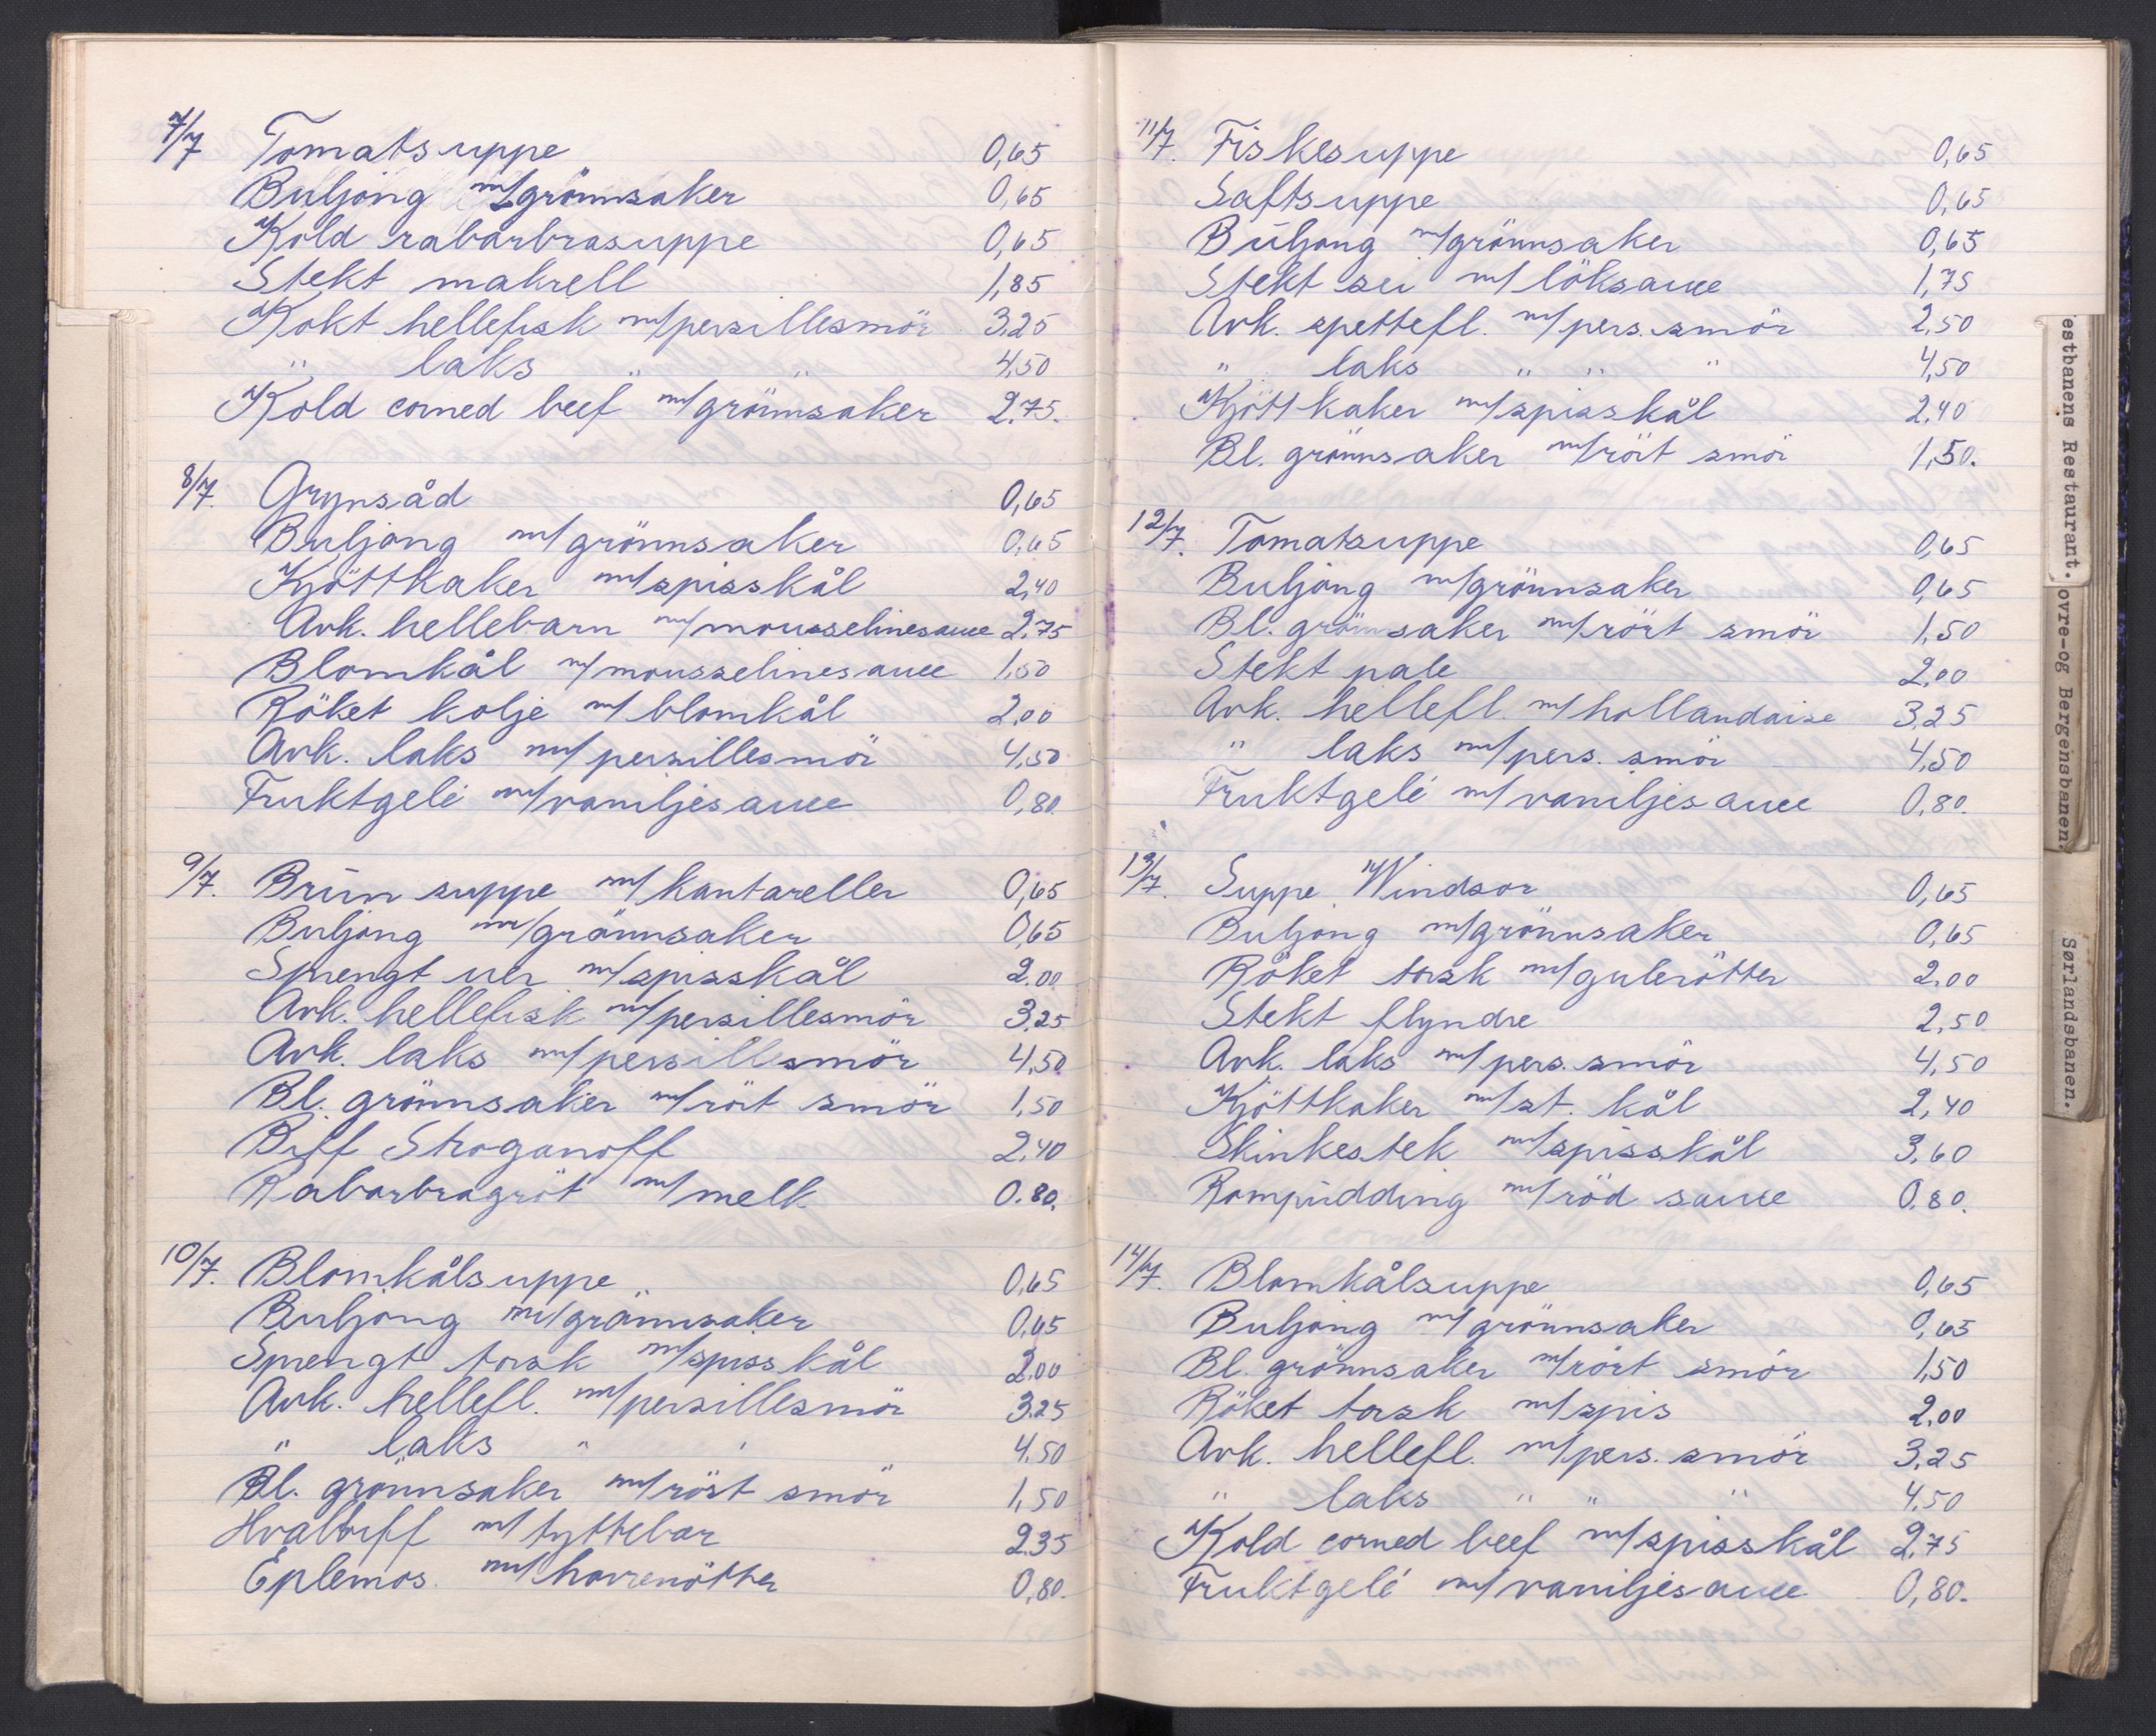 7/7 Tomatsuppe 0,65
Buljong m/grönnsaker 0,65
Kold rabarbrasuppe 0,65
Stekt makrell 1,85
Kokt hellefisk m/persillesmör 3,25
" laks " " 4,50
Kold corned beef m/grönnsaker 2,75.
8/7. Grynsåd 0,65
Buljong m/grönnsaker 0,65
Kjöttkaker m/spisskål 2,40
Avk. hellebarn m/mousselinesauce 2,75
Blomkål m/mousselinesauce 1,50
Röket kolje m/blomkål 2,00
Avk. laks m/persillesmör 4,50
Fruktgelé m/vaniljesauce 0,80.
9/7. Brun suppe m/kantareller 0,65
Buljong m/grönnsaker 0,65
Sprengt uer m/spisskål 2.00
Avk. hellefisk m/persillesmör 3,25
Avk. laks m/persillsmör 4,50
Bl. grönnsaker m/rört smör 1,50
Biff Stroganoff 2,40
Rabarbragröt m/melk 0.80.
10/7. Blomkålsuppe 0,65
Buljong m/grönnsaker 0,65
Sprengt torsk m/spisskål 2.00
Avk. hellefl. m/persillesmör 3.25
" laks " " 4.50
Bl. grönnsaker m/rört smör 1,50
Hvalbiff m/tyttebær 2.35
Eplemos m/havrenötter 0,80.
11/7. Fiskesuppe 0,65
Saftsuppe 0,65
Buljong m/grönnsaker 0,65
Stekt sei m/löksauce 1,75
Avk. spettefl. m/pers. smör 2,50
" laks " " " 4,50
Kjöttkaker m/spisskål 2,40
Bl. grönnsaker m/rört smör 1,50.
12/7. Tomatsuppe 0,65
Buljong m/grönnsaker 0,65
Bl. grönnsaker m/rört smör 1,50
Stekt pale 2,00
Avk. hellefl. m/hollandaise 3,25
" laks m/pers. smör 4,50
Fruktgelé m/vaniljesauce 0,80.
13/7. Suppe Windsor 0,65
Buljong m/grönnsaker 0,65
Röket torsk m/gulerötter 2.00
Stekt flyndre 2,50
Avk. laks m/pers. smör 4,50
Kjöttkaker m/st. kål 2,40
Skinkestek m/spisskål 3,60
Rompudding m/röd sauce 0.80.
14/7. Blomkålsuppe 0,65
Buljong m/grönnsaker 0,65
Bl. grönnsaker m/rört smör 1,50
Röket torsk m/spis 2.00
Avk. hellefl. m/pers. smör 3,25
" laks " " " 4.50
Kold corned beef m/spisskål 2,75
Fruktgelé m/vaniljesauce 0,80.
estbanens Restaurant.
ovre-og Bergensbanen.
Sørlandsbanen.